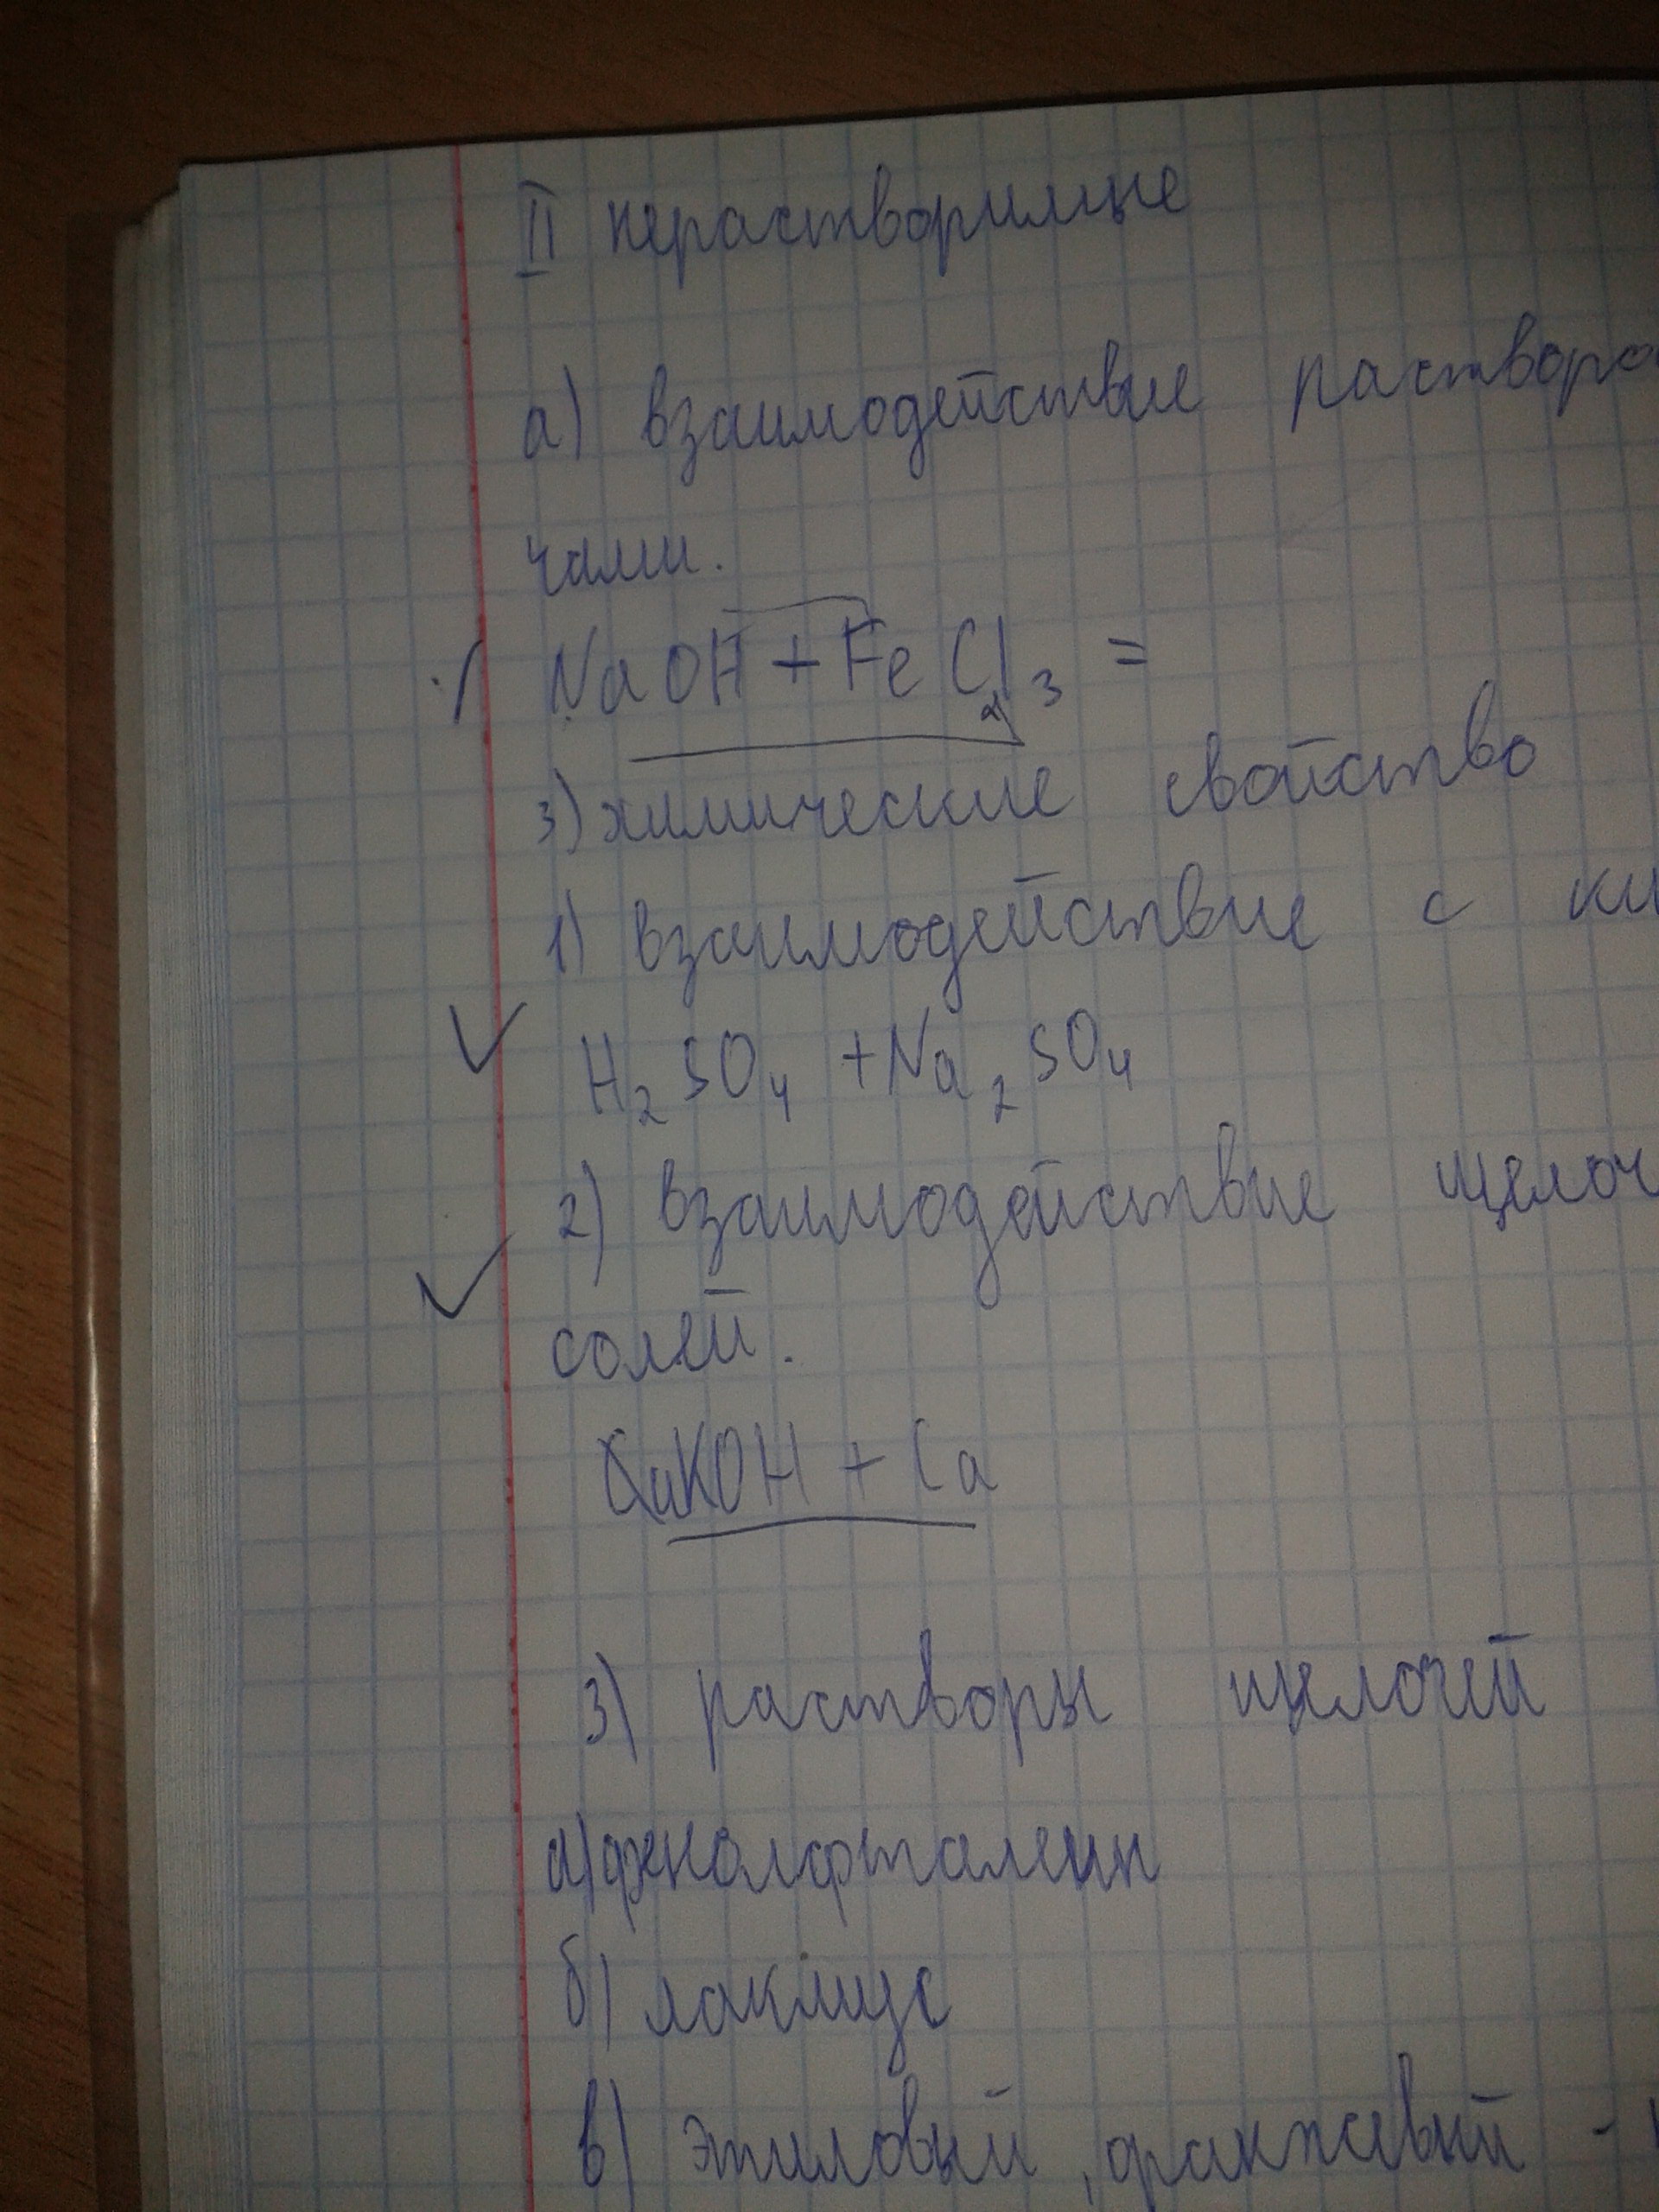 II нерастворимые
а) взаимодействие раствора
чами.
NaOH + FeCl3 =
3) химические свойство
1) взаимодействие с ки
H2SO4 + Na2SO4
2) взаимодействие щелоч
солей.
KOH + Ca
3) растворы щелочей
а) фенолфталеин
б) лакмус
в) этиловый,